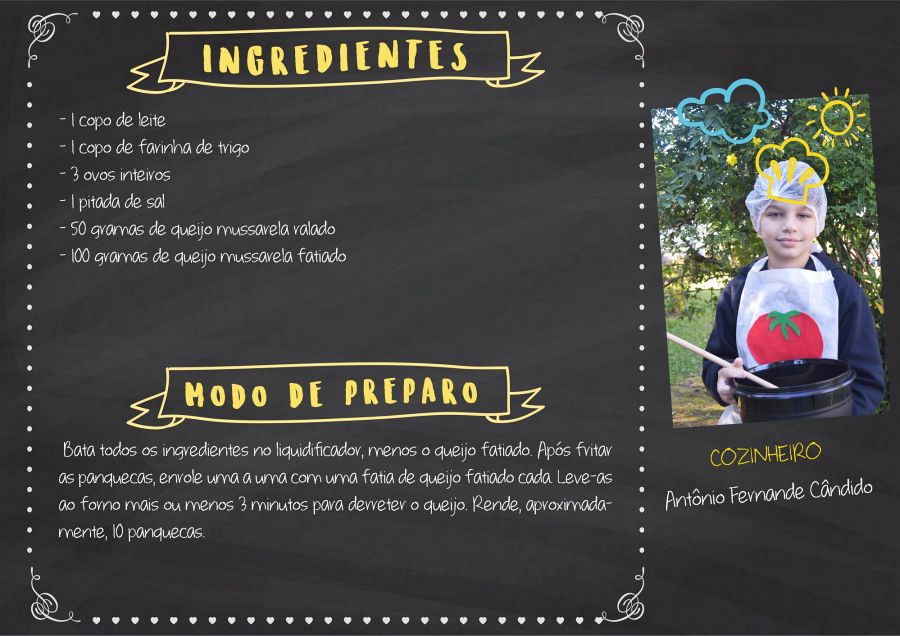 INGREDIENTES
- 1 copo de leite
- 1 copo de farinha de trigo
- 3 ovos inteiros
- 1 pitada de sal
- 50 gramas de queijo mussarela ralado
- 100 gramas de queijo mussarela fatiado
MODO DE PREPARO
Bata todos os ingredientes no liquidificador, menos o queijo fatiado. Após fritar
as panquecas, enrole uma a uma com uma fatia de queijo fatiado cada. Leve-as
ao forno mais ou menos 3 minutos para derreter o queijo. Rende, aproximada-
mente, 10 panquecas.
COZINHEIRO
Antônio Fernande Cândido